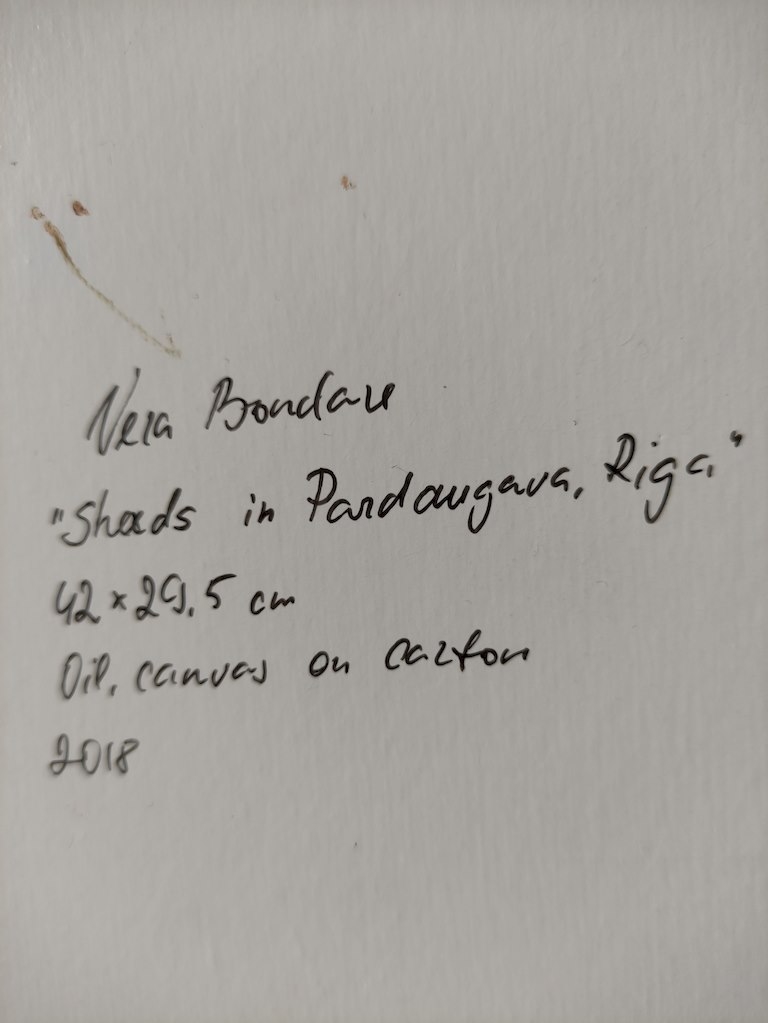 Vera Bondare
"Sheds in Pardaugava, Riga"
42 x 29.5 cm
Oil, canvas on carton
2018